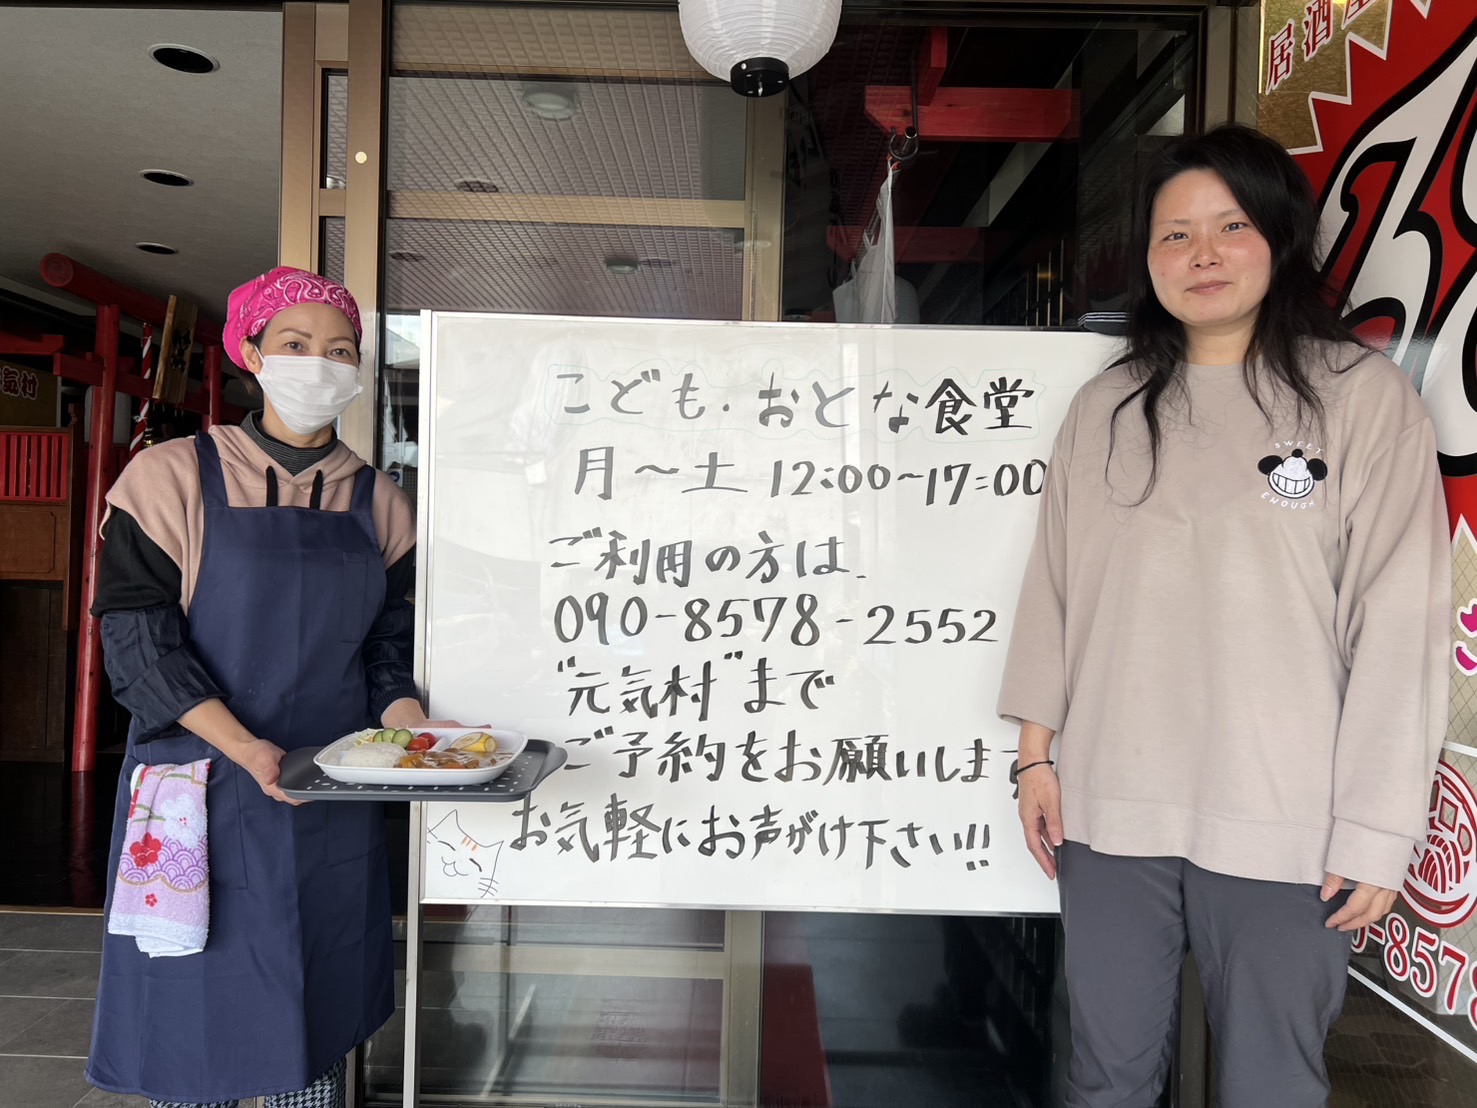 こども・おとな食堂
月～土 12:00~17:00
ご利用の方は、
090-8578-2552
"元気村"まで
ご予約をお願いします
お気軽にお声がけ下さい!!
居酒屋
気村
SWEET
ENOUGH
-8578